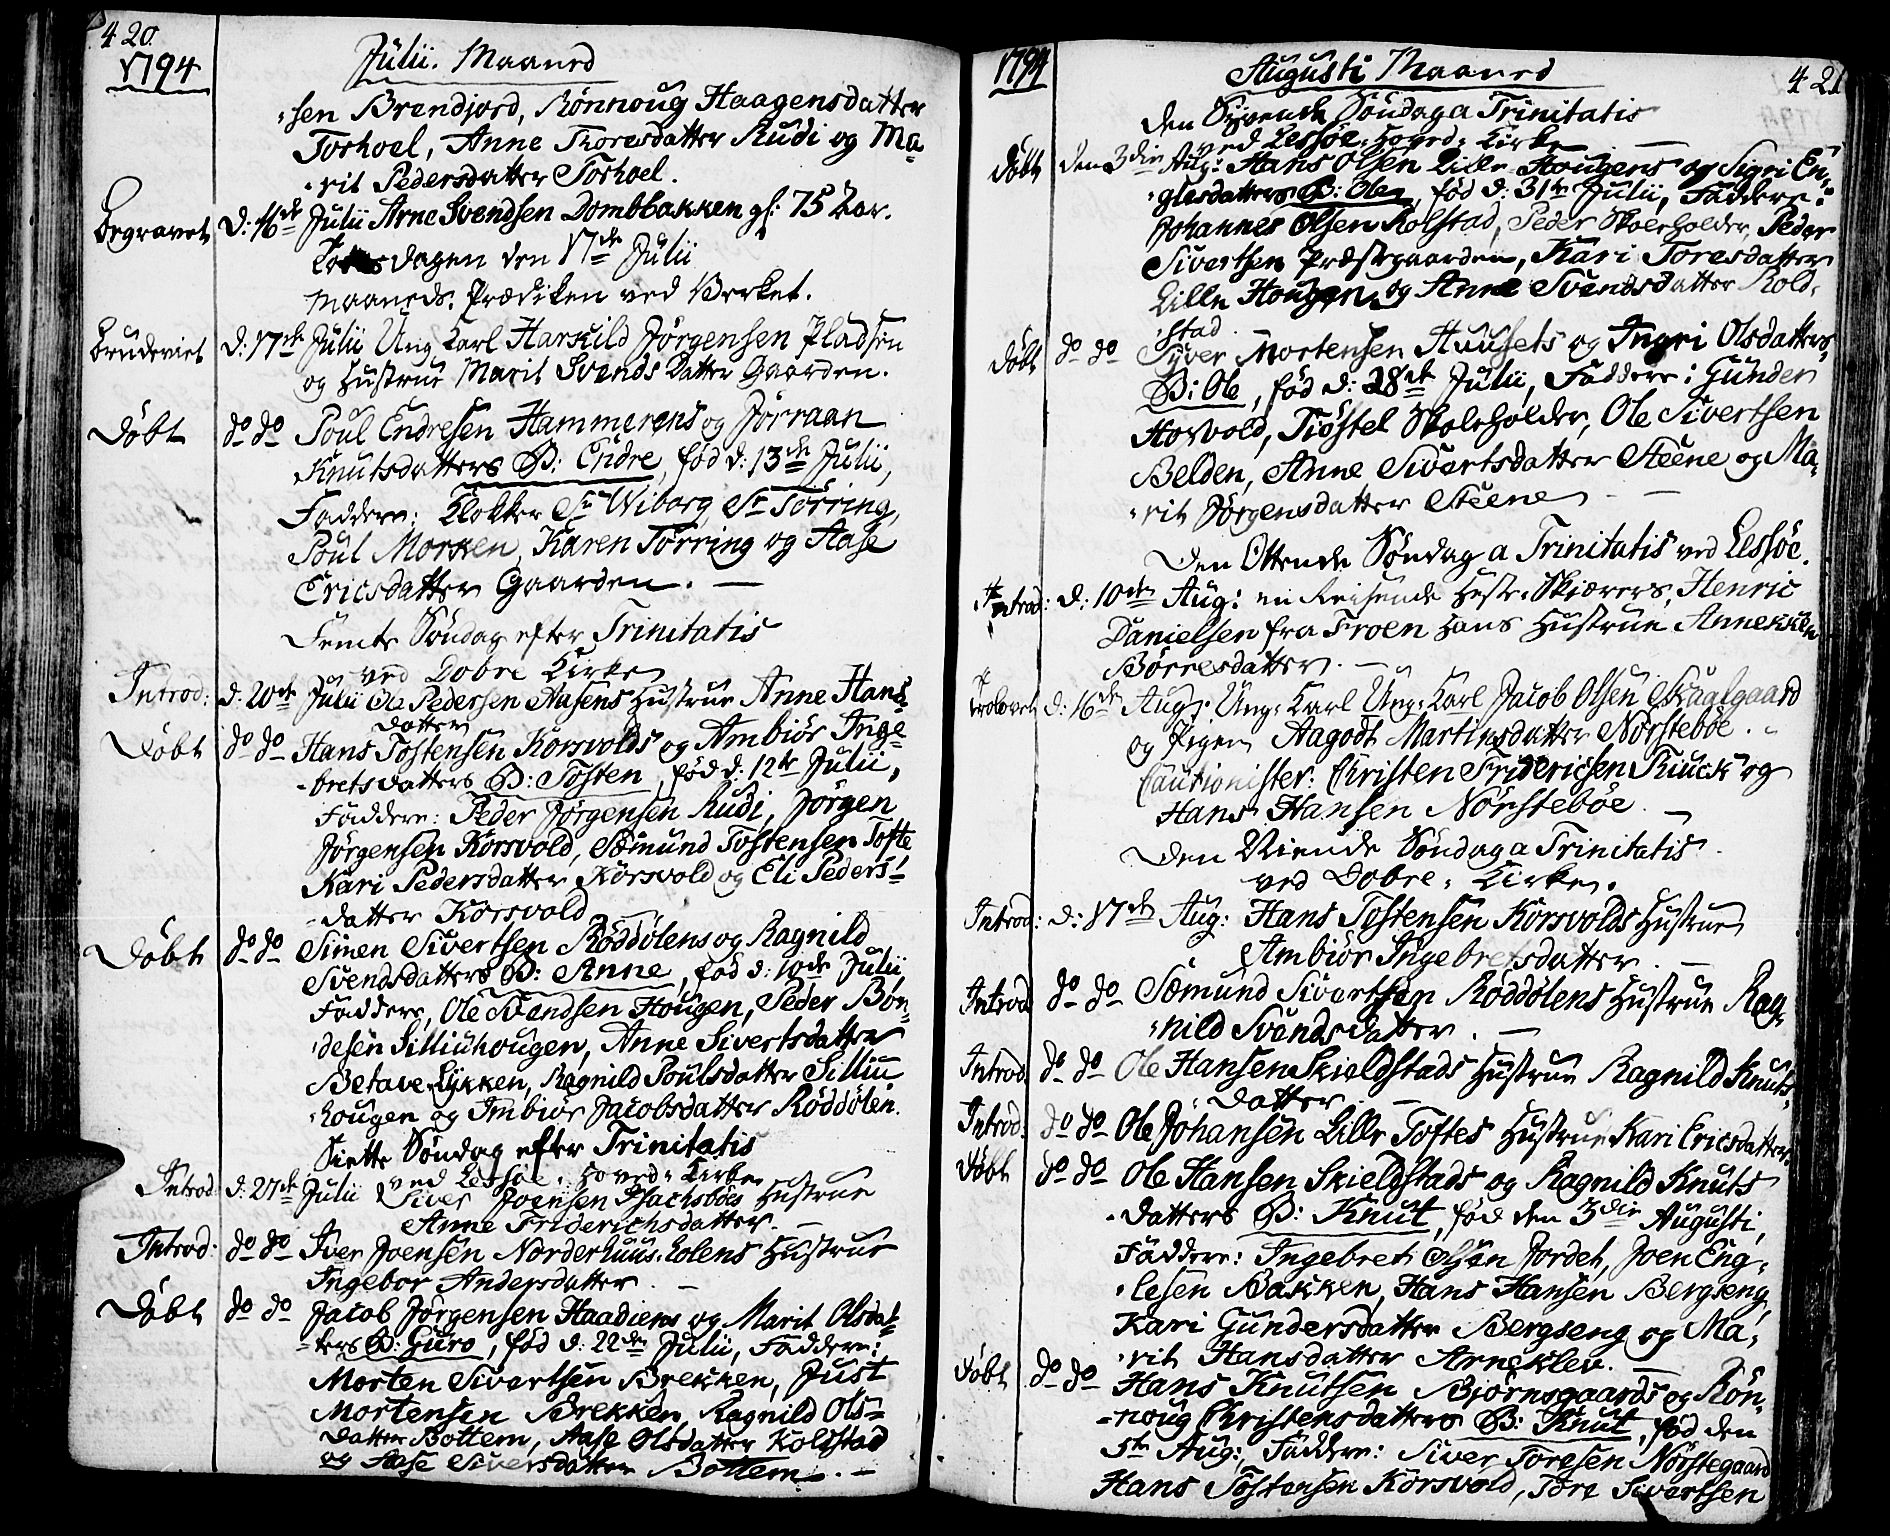 420.
1794
Julii. Maaned
-sen Brendjord, Rønnoug Haagensdatter
Torhoel, Anne Thoresdatter Rudi og Ma-
-rit Pedersdatter Torhoel.
Begravet d: 16de Julii Arne Svendsen Dombbakken gl: 75 Aar.
dagen den 17de Julii
Maaneds. Prædiken ved Verket.
Brudeviet d: 17de Julii Ung Karl Harskild Jørgensen Pladsen
og Hustrue Marit Svends Datter Gaarden.
Døbt do do Poul Endresen Hammerens og Jørraan
Knutsdatters B: Endre, fød d: 13de Julii,
Faddere: Klokker Sr Wiborg, Sr Tørring,
Poul Morken, Karen Tørring og Aase
Ericsdatter Gaarden. —
Femte Søndag efter Trinitatis
ved Dovre Kirke
Introd: d: 20de Julii Ole Pedersen Aasens Hustrue Anne Hans-
datter
Døbt do do Hans Tostensen Korsvolds og Ambiør Inge-
-bretsdatters B: Tosten, fød d: 12te Julii,
Faddere: Peder Jørgensen Rudi, Jørgen
Jørgensen Korsvold, Sæmund Tostensen Tofte,
Kari Pedersdatter Korsvold og Eli Peders-
-datter Korsvold
Døbt do do Simen Sivertsen Røddølens og Ragnild
Svendsdatters B: Anne, fød d: 10de Julii,
Faddere, Ole Svendsen Hougen, Peder Bon-
desen Silliuhougen, Anne Sivertsdatter
Betave Lykken, Ragnild Poulsdatter Silliu
-hougen og Imbiør Jacobsdatter Røddølen.
Siette Søndag efter Trinitatis
ved Lessøe. Hoved-Kirke
Introd: d: 27de Julii Siver Joensen Hustrue
Anne Friderichsdatter. —
Introd: do do Iver Joensen Norderhuus. Holens Hustrue
Ingebor Andersdatter. —
Døbt do do Jacob Jørgensen Haadiens og Marit Olsdat-
-ters B: Guro, fød d: 22de Julii, Faddere:
Morten Sivertsen Brekken, Just
Mortensen Brekken, Ragnild Ols-
datter Bottem, Aase Olsdatter Kolstad
og Aase Siversdatter Bottem. —
1794
Augusti Maaned
421
den Syvende Søndag a Trinitatis
ved Lessøe-Hoved-Kirke
Døbt den 3die Aug: Hans Olsen Lille Hougens og Sigri En-
-glesdatters B: Ole, fød d: 31te Julii, Faddere:
Johannes Olsen Kolstad, Peder Skoleholder, Peder
Sivertsen Præstgaarden, Kari Toresdatter
Lille Hougen og Anne Svendsdatter Kold-
-stad.
Døbt do do Syver Mortensen Huusets og Ingri Olsdatters
B: Ole, fød d: 28de Julii, Faddere: Gunder
Horvold, Tiøstel Skoleholder, Ole Sivertsen
Belden, Anne Sivertsdatter Steene og Ma-
-rit Jørgensdatter Steene —
Den Ottende Søndag a Trinitatis ved Lessøe.
Introd: d: 10de Aug: en Reisende Heste-Skiærers, Henric
Danielsen fra Froen Hans Hustrue Annekken
Børresdatter. —
Trolovet d: 16de Aug: Ung-Karl Ung-Karl Jacob Olsen Skaalgaard
og Pigen Aagodt Martinsdatter Nørstebøe.
Cautionister: Christen Fridericsen Kiuck og
Hans Hansen Nørstebøe. —
Den Niende Søndag a Trinitatis
ved Dovre-Kirke.
Introd: d: 17de Aug: Hans Tostensen Korsvolds Hustrue
Ambiør Ingebretsdatter. —
Introd do do Sæmund Sivertsen Røddølens Hustrue Rag-
-nild Svendsdatter. —
Introd do do Ole Hansen Skieldstads Hustrue Ragnild Knuts-
-datter. —
Introd: do do Ole Johansen Lille Toftes Hustrue Kari Ericsdatter.
Døbt do do Ole Hansen Skieldstads og Ragnild Knuts
-datters B: Knut, fød den 3die Augusti,
Faddere: Ingebret Olsen Jordet, Joen Eng-
-lesen Bakken, Hans Hansen Bergseng,
Kari Gundersdatter Bergseng og Ma-
-rit Hansdatter Arneklev. —
Døbt do do Hans Knutsen Bjørnsgaards og Røn-
-noug Christensdatters B: Knut, fød den
5te Aug: Faddere: Siver Toresen Nørstegaard
Hans Tostensen Korsvold, Tore Sivertsen